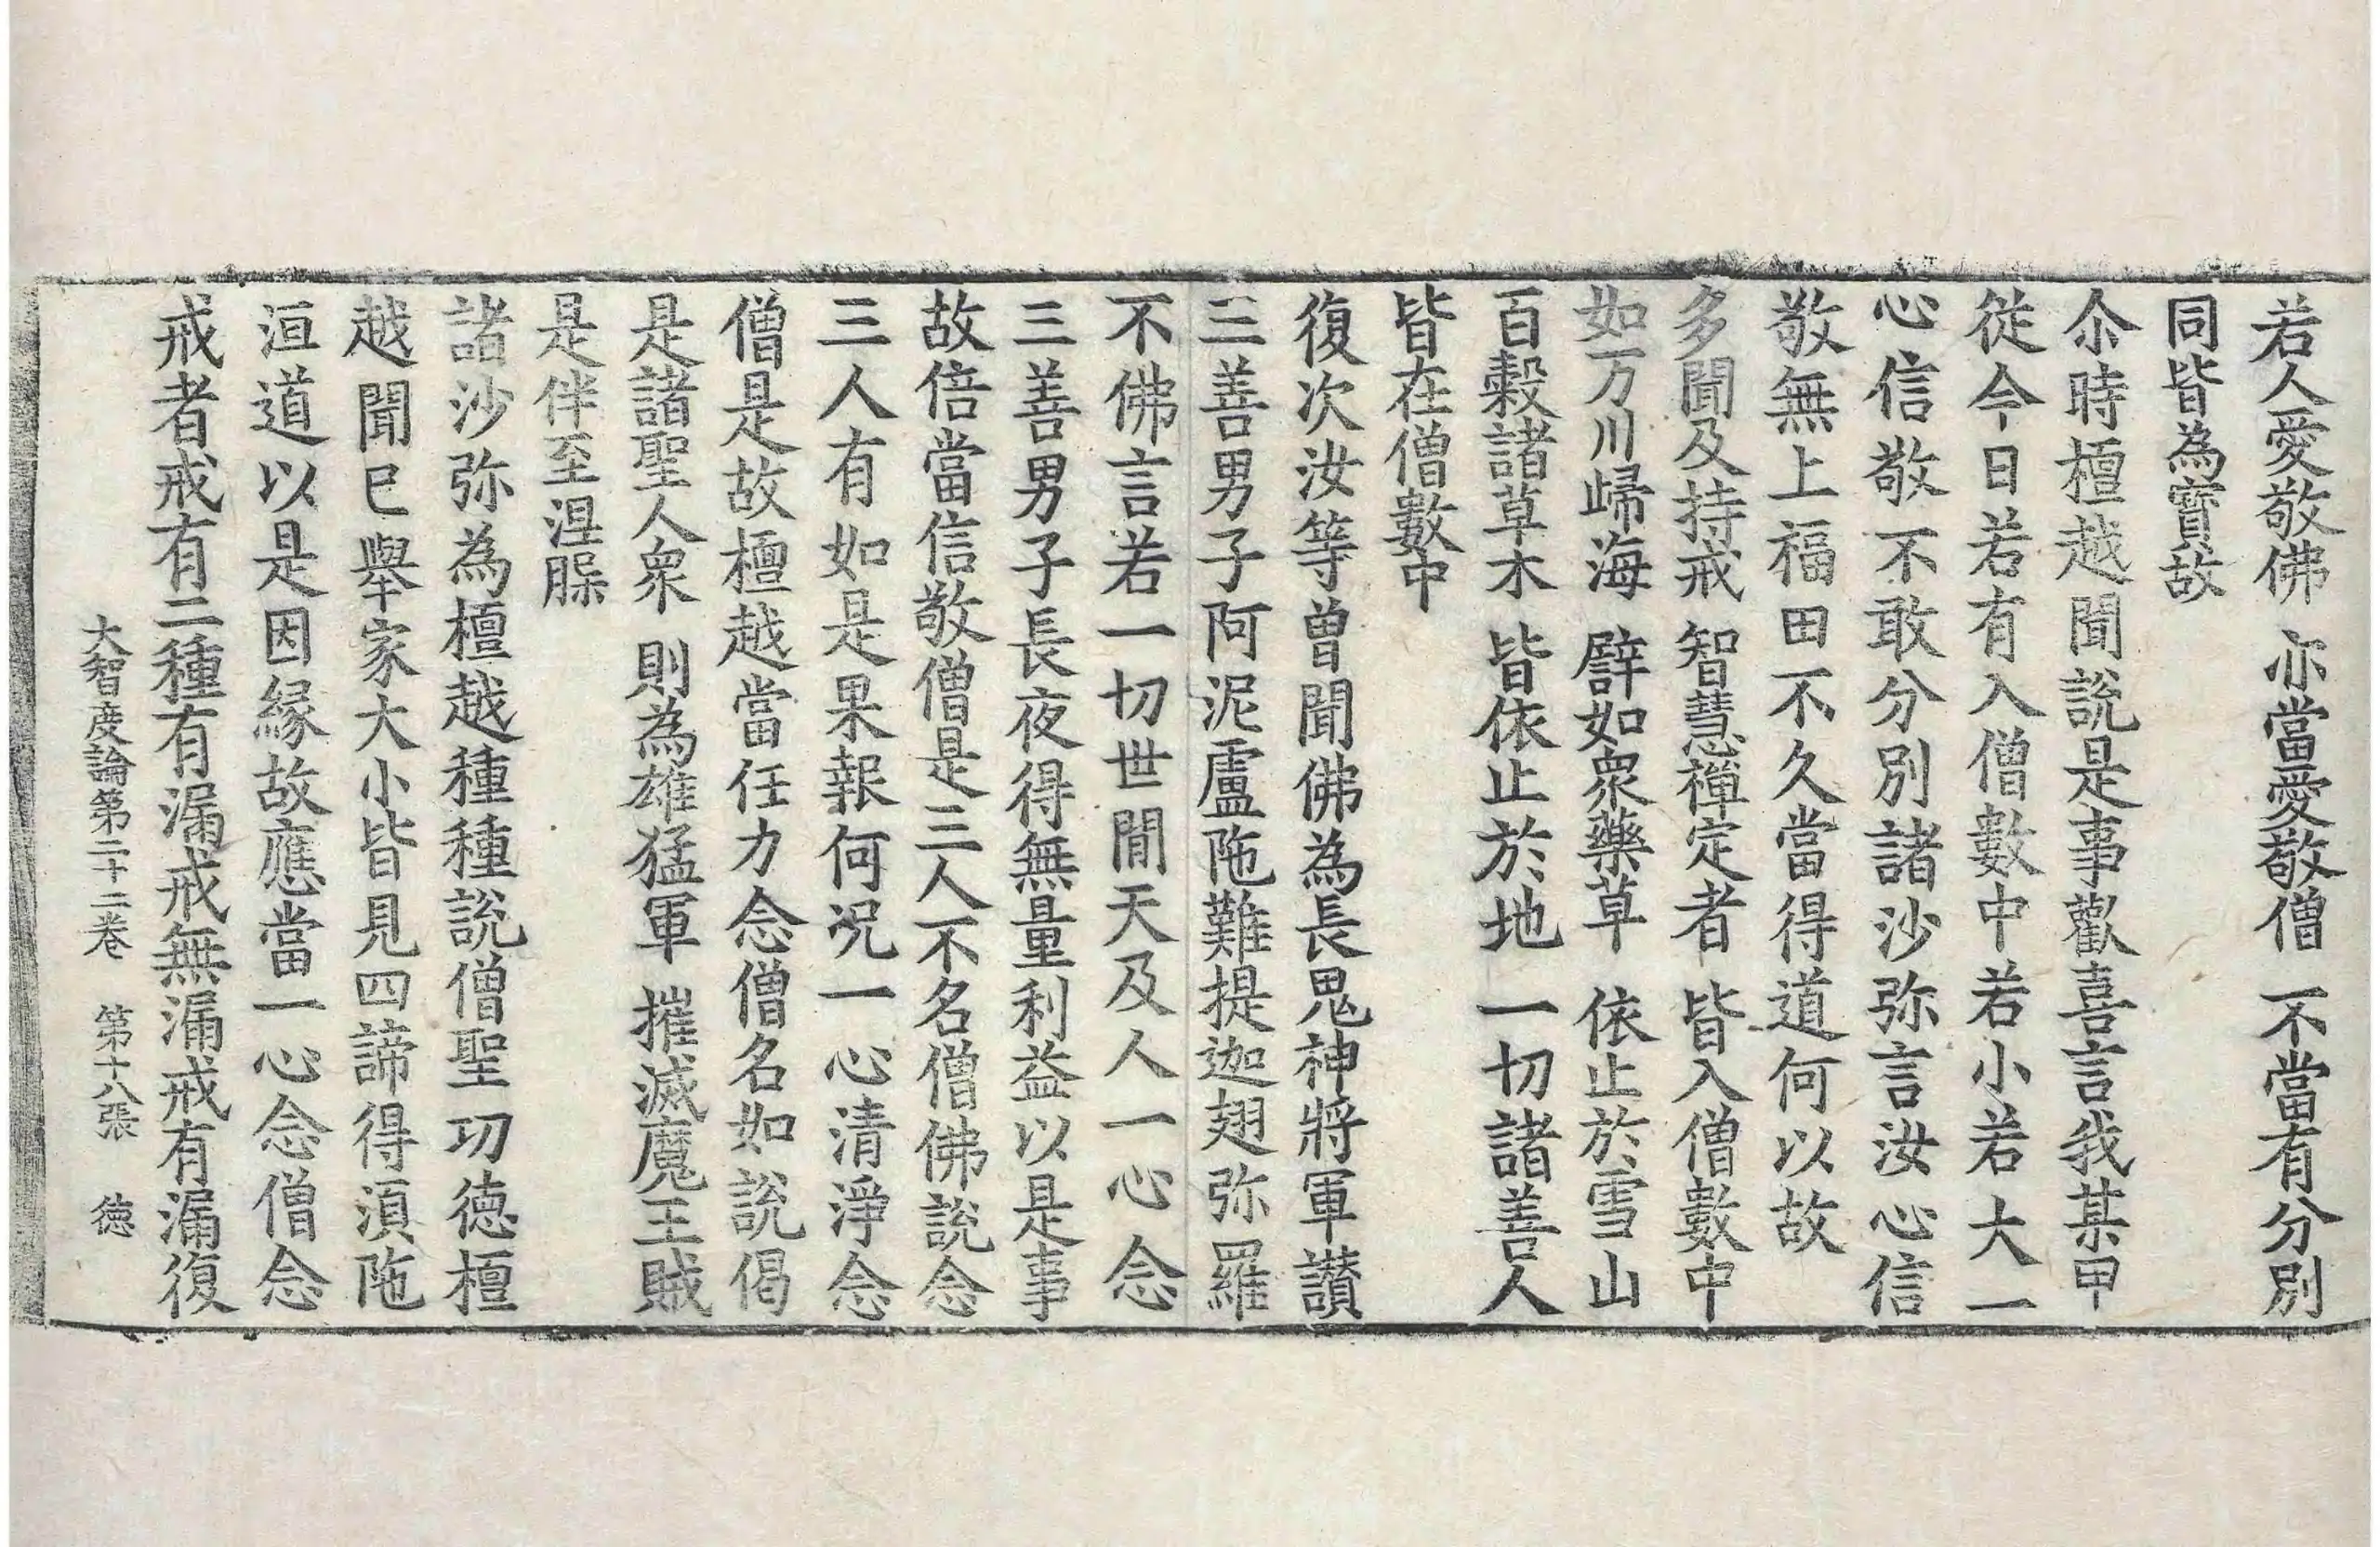 若人愛敬佛 亦當愛敬僧 不當有分別
同皆為寶故
尒時檀越聞說是事歡喜言我某甲
從今日若有入僧數中若小若大一
心信敬不敢分別諸沙弥言汝心信
敬無上福田不久當得道何以故
多聞及持戒 智慧禪定者 皆入僧數中
如万川歸海 譬如衆藥草 依止於雪山
百穀諸草木 皆依止於地 一切諸善人
皆在僧數中
復次汝等曾聞佛為長鬼神將軍讃
三善男子阿泥盧陁難提迦翅弥羅
不佛言若一切世閒天及人一心念
三善男子長夜得無量利益以是事
故倍當信敬僧是三人不名僧佛說念
三人有如是果報何况一心清淨念
僧是故檀越當任力念僧名如說偈
是諸聖人衆 則為雄猛軍 摧滅魔王賊
是伴至涅䐗
諸沙弥為檀越種種說僧聖功德檀
越聞已舉家大小皆見四諦得湏陁
洹道以是因縁故應當一心念僧念
戒者戒有二種有漏戒無漏戒有漏復
大智度論第二十二卷 第十八張 德